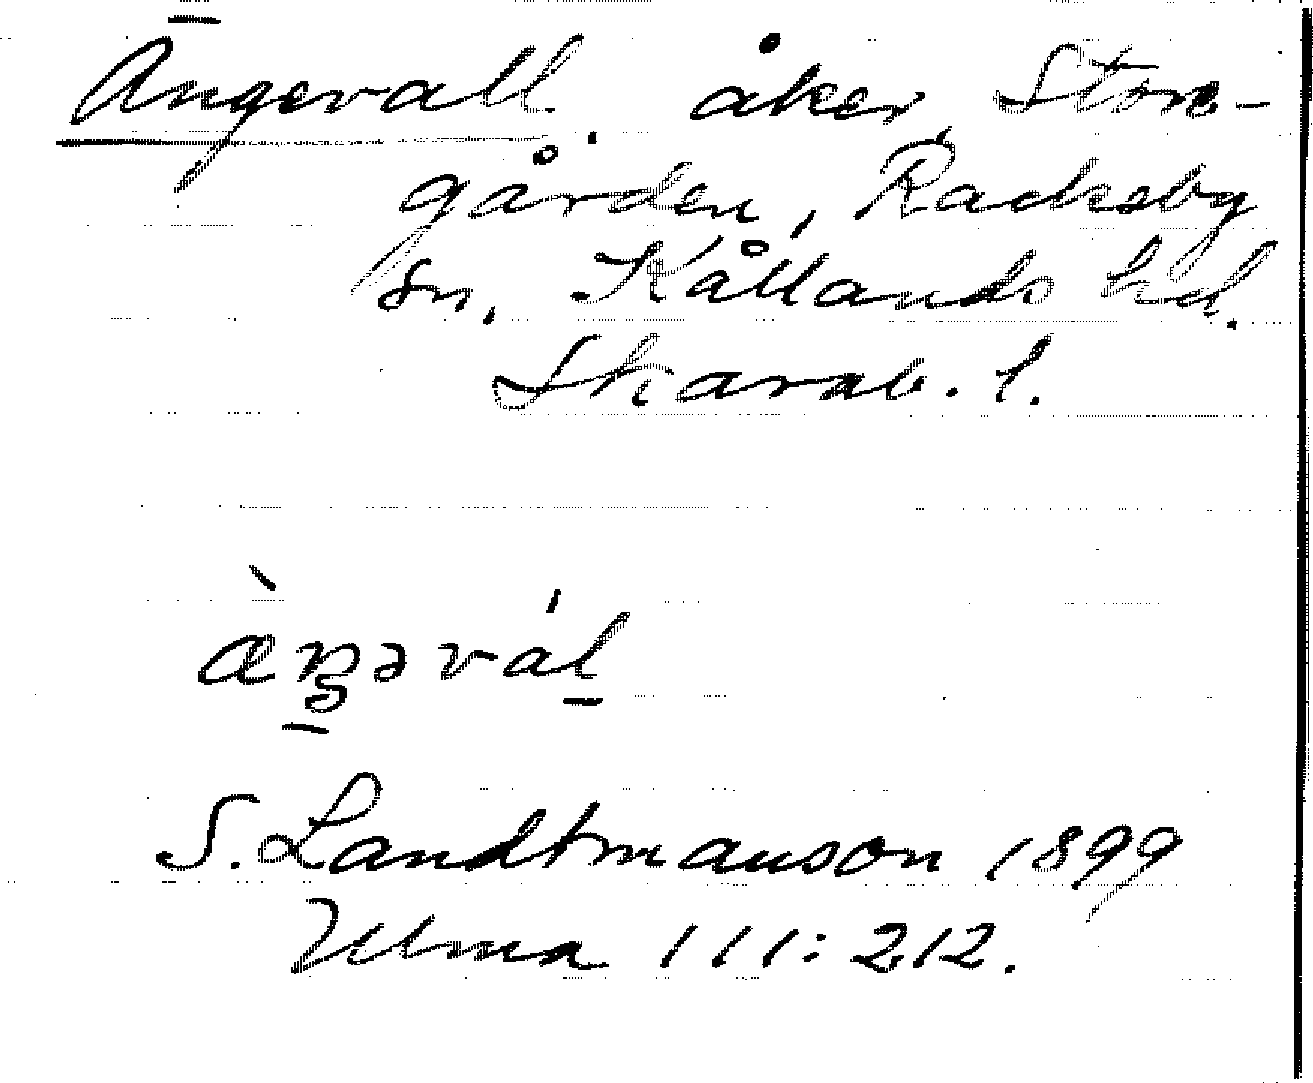 Ängevall åker, Store-
gården, Rackeby
sn, Kållands hd.
Skarab. l.
æ̀ŋəvál
S. Landtmanson 1899
Ulma 111:212.